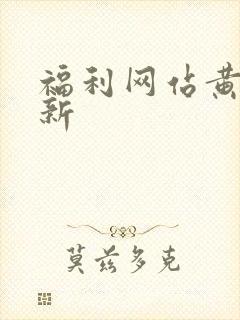 福利网佔黄
新
莫兹多克